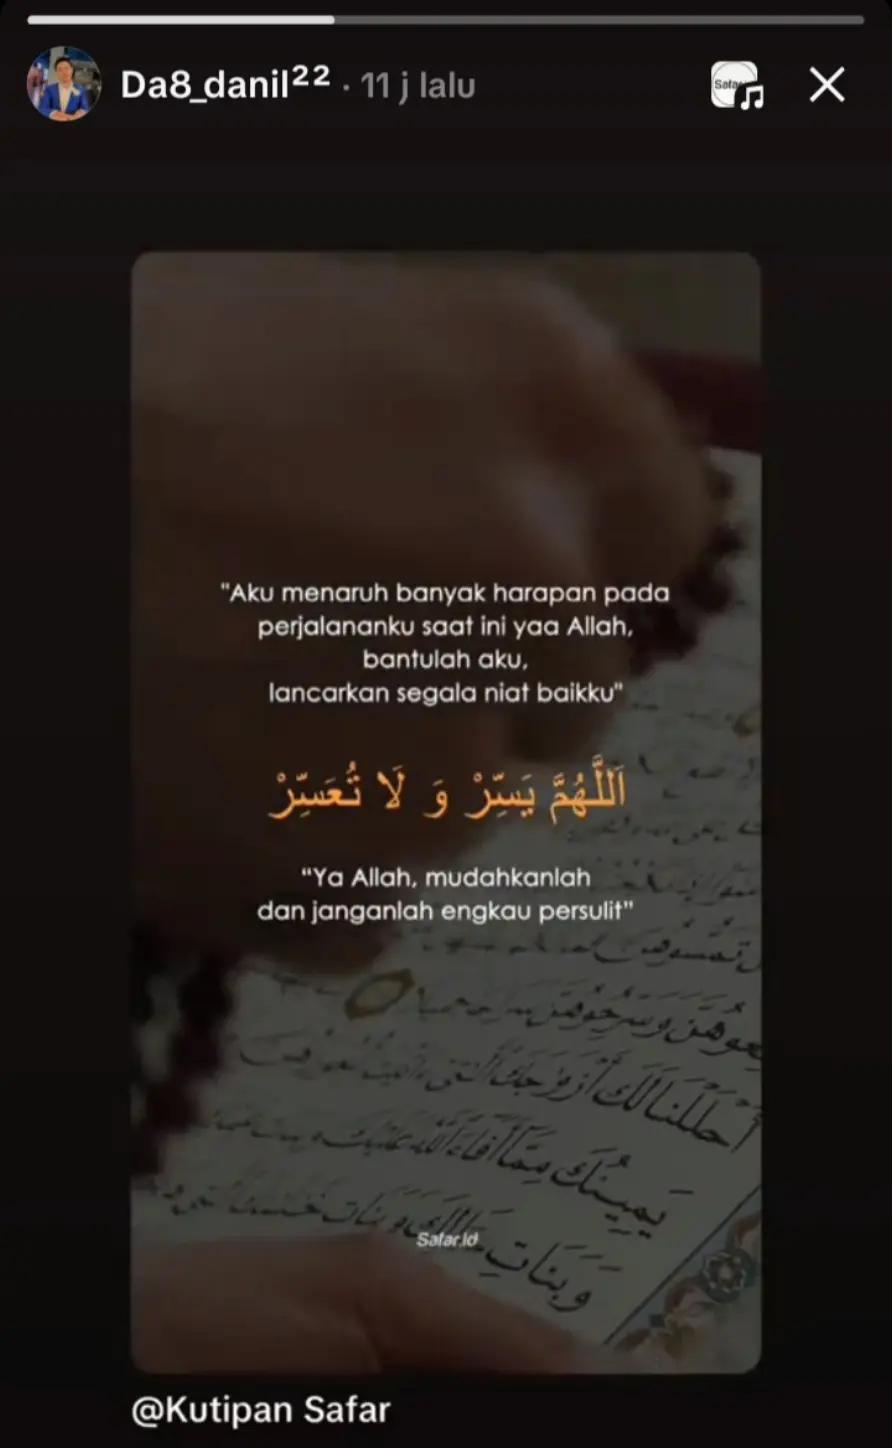 Da8_danil²² · 11 j lalu
Safar
"Aku menaruh banyak harapan pada
perjalananku saat ini yaa Allah,
bantulah aku,
lancarkan segala niat baikku"
اَللَّهُمَّ يَسِّرْ وَ لَا تُعَسِّرْ
"Ya Allah, mudahkanlah
dan janganlah engkau persulit"
أَحْلَلْنَا لَكَ أَزْوَاجَكَ
يَمِينُكَ مِمَّا أَفَاءَ اللَّهُ عَلَيْكَ
وَبَنَاتِ
Safar.id
@Kutipan Safar